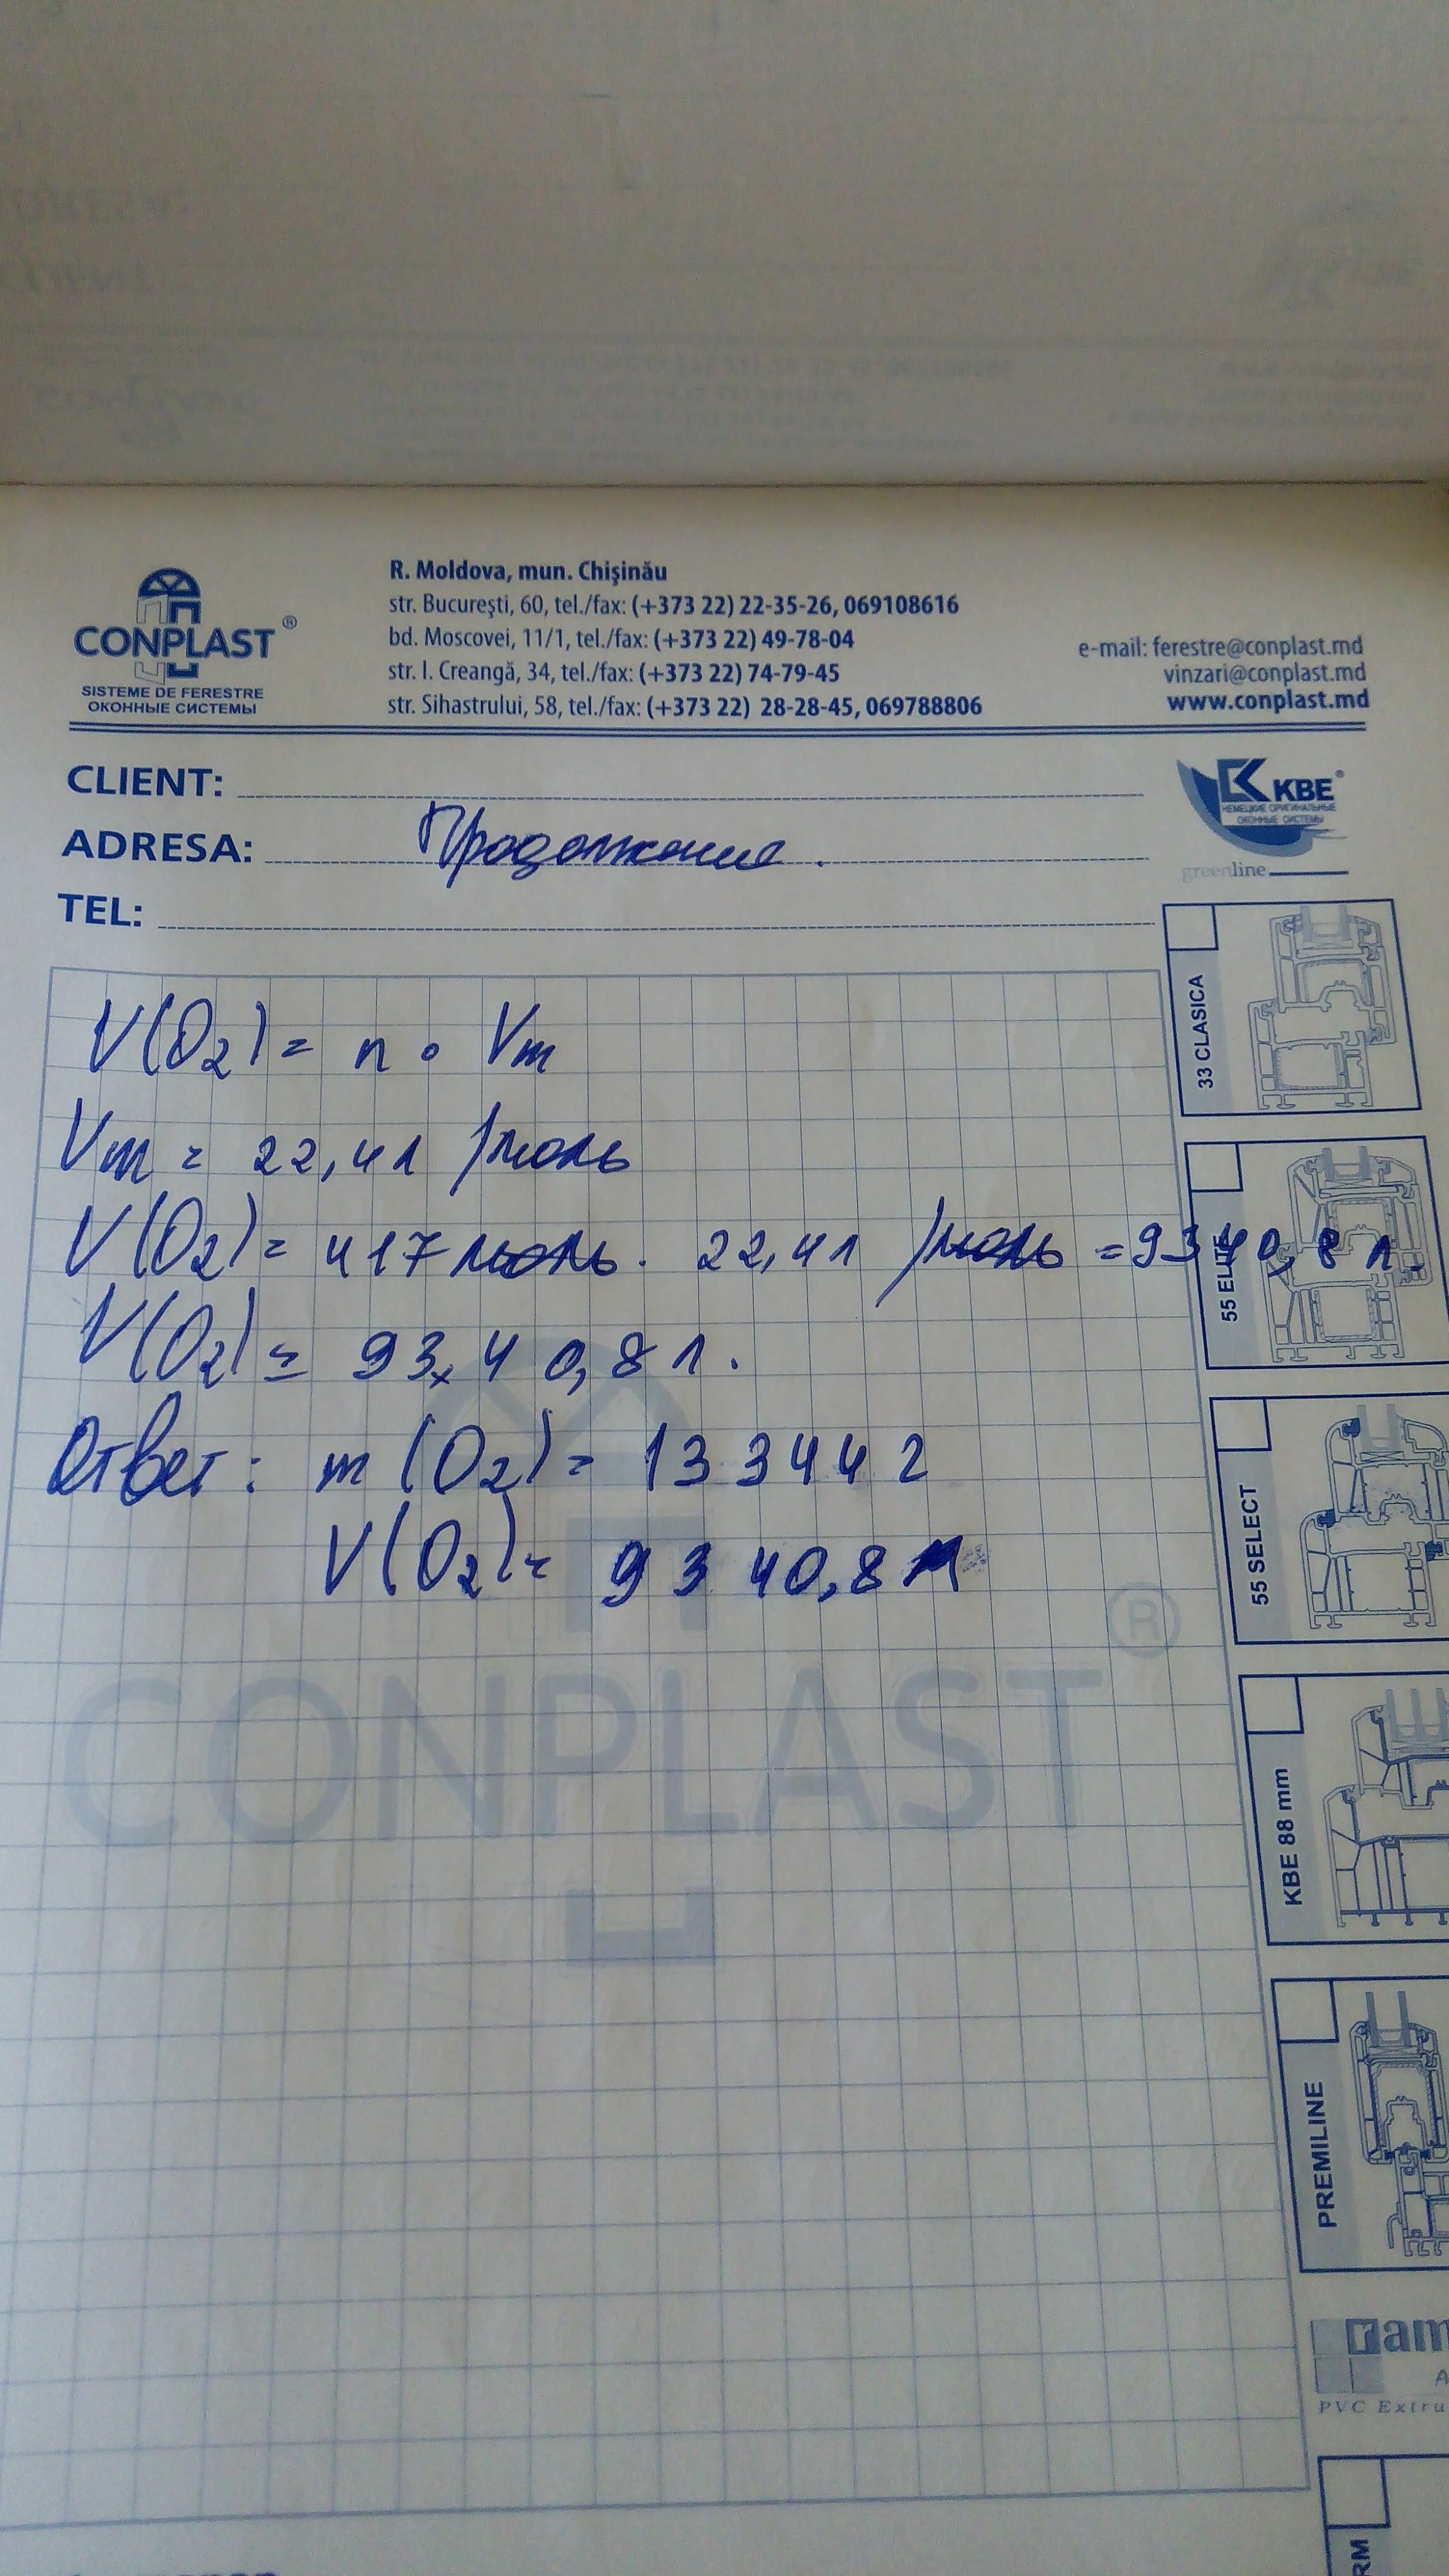 CONPLAST®
SISTEME DE FERESTRE
ОКОННЫЕ СИСТЕМЫ
R. Moldova, mun. Chişinău
str. Bucureşti, 60, tel./fax: (+373 22) 22-35-26, 069108616
bd. Moscovei, 11/1, tel./fax: (+373 22) 49-78-04
str. I. Creangă, 34, tel./fax: (+373 22) 74-79-45
str. Sihastrului, 58, tel./fax: (+373 22) 28-28-45, 069788806
e-mail: ferestre@conplast.md
vinzari@conplast.md
www.conplast.md
CLIENT:
ADRESA: Продолжение.
TEL:
KBE®
НЕМЕЦКИЕ ОРИГИНАЛЬНЫЕ
ОКОННЫЕ СИСТЕМЫ
greenline
V(O2) = n · Vm
Vm = 22,4 л /моль
V(O2) = 417 моль · 22,4 л /моль = 9340,8 л.
V(O2) = 9340,8 л.
Ответ: m (O2) = 13344 г
V(O2) = 9340,8 л
CONPLAST®
33 CLASICA
55 ELITE
55 SELECT
KBE 88 mm
PREMILINE
ram
A
PVC Extru
RM